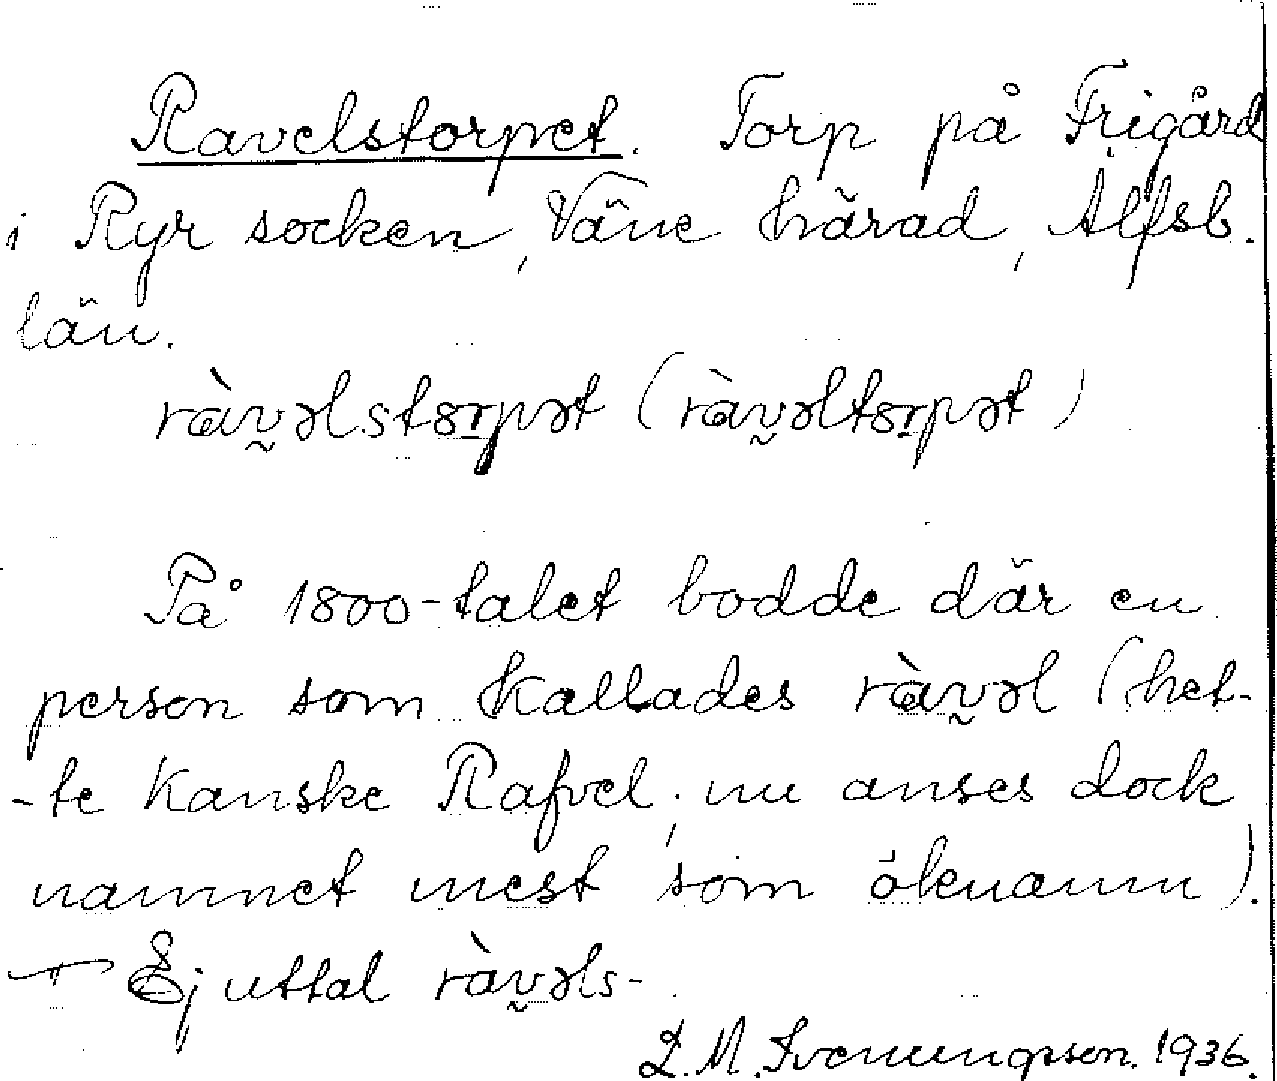 Ravelstorpet. Torp på Frigård
i Ryr socken, Väne härad, Älfsb.
län.
ràv̰əlstɞrpət (ràv̰əltɞrpət)
På 1800-talet bodde där en
person som kallades ràv̰əl (het-
-te kanske Rafvel; nu anses dock
namnet mest som öknamn).
— Ej uttal ràv̰əls-
L. M. Svenungsson. 1936.